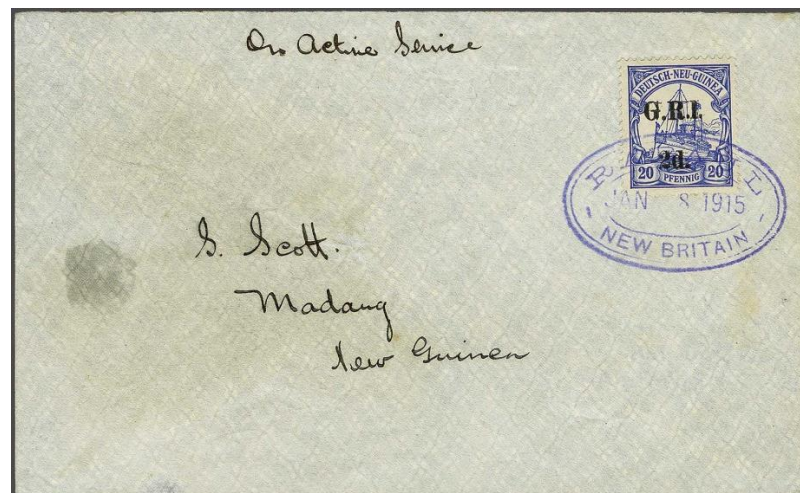 On Active Service
DEUTSCH-NEU-GUINEA
G.R.I.
2d.
20 PFENNIG 20
JAN 8 1915
NEW BRITAIN
S. Scott.
Madang
New Guinea